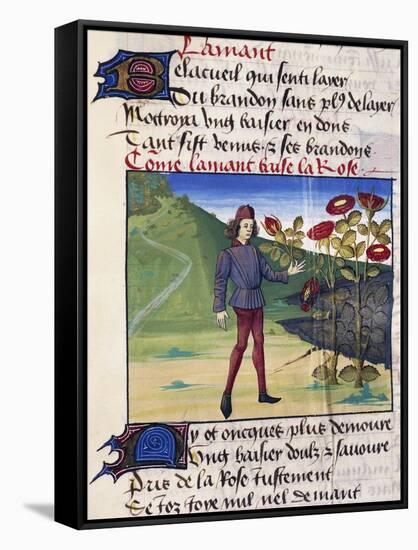 Lamant
Belacueil qui senti layer
Du brandon sans plꝰ delayer
Moctroya ung baisier en dons
Tant fist venus ⁊ ses brandons
Cõme lamant baise la Rose
Ny ot oncques plus demoure
Ung baisier doulz ⁊ savoure
Pris de la Rose tustement
Se joy joye nul nel demant